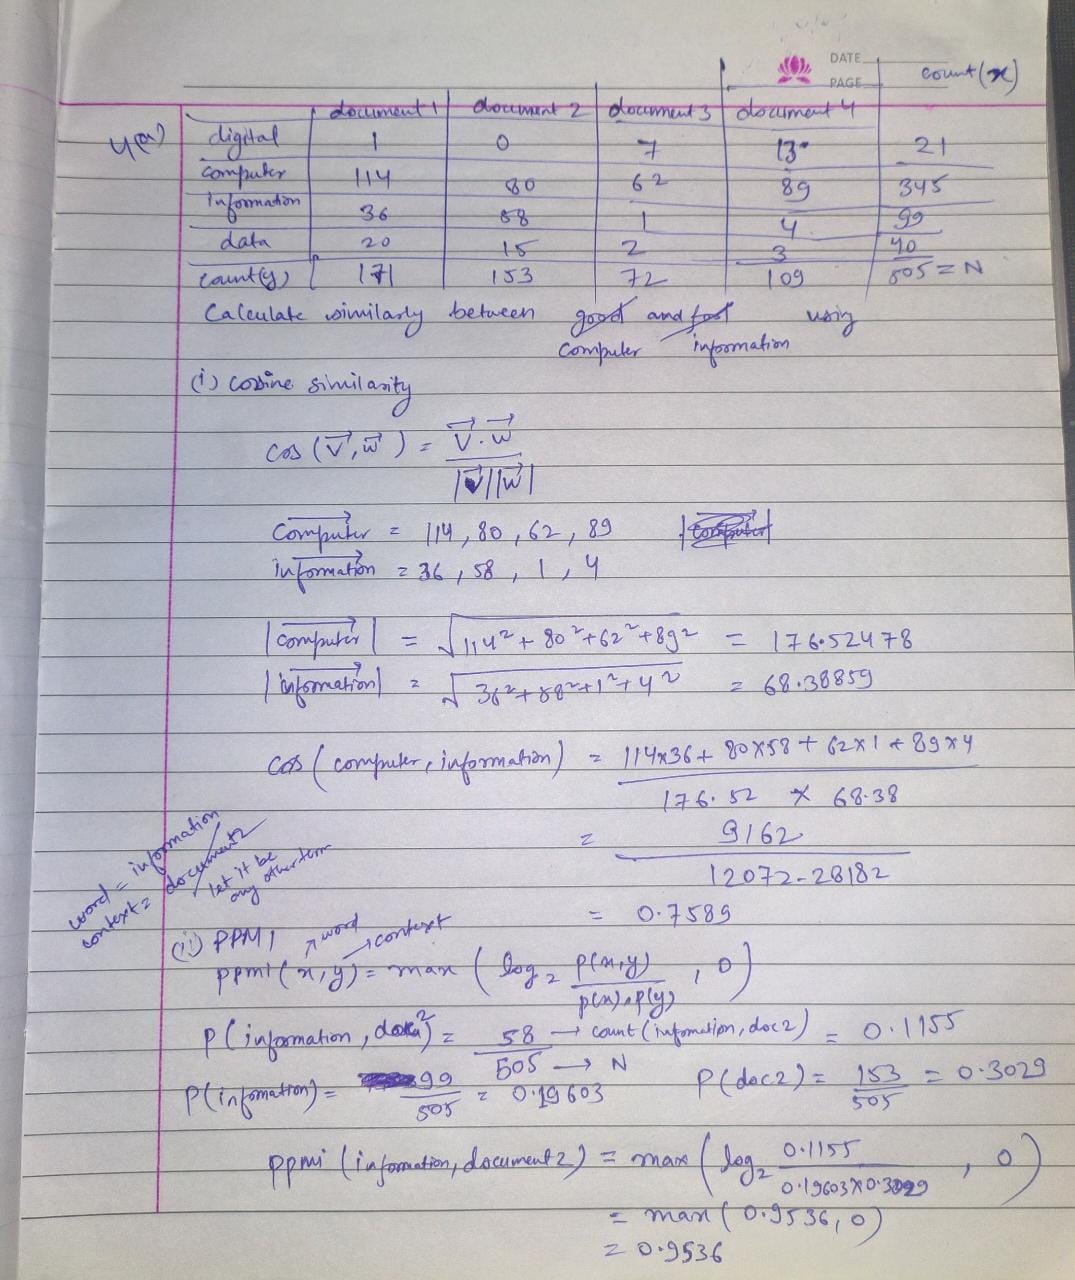 DATE
PAGE
count(x)
document 1 document 2 document 3 document 4
4(a) digital 1 0 7 13 21
computer 114 80 62 89 345
information 36 58 1 4 99
data 20 15 2 3 40
count(y) 171 153 72 109 505 = N
Calculate similarly between good and fast using
computer information
(i) cosine similarity
cos (v, w) = v . w
|v| |w|
computer = 114, 80, 62, 89 |computer|
information = 36, 58, 1, 4
|computer| = √114² + 80² + 62² + 89² = 176.52478
|information| = √36² + 58² + 1² + 4² = 68.38859
cos (computer, information) = 114x36 + 80x58 + 62x1 + 89x4
176.52 x 68.38
= 9162
12072.28182
= 0.7589
word = information
context = document 2
let it be
any other term
(ii) PPMI word context
ppmi (x, y) = max ( log₂ p(x,y) , 0 )
p(x) . p(y)
P (information, doc2) = 58 → count (infomation, doc2) = 0.1155
505 → N
P(infomation) = 99 = 0.19603 P(doc2) = 153 = 0.3029
505 505
ppmi (infomation, document 2) = max ( log₂ 0.1155 , 0 )
0.19603 x 0.3029
= max ( 0.9536, 0 )
= 0.9536